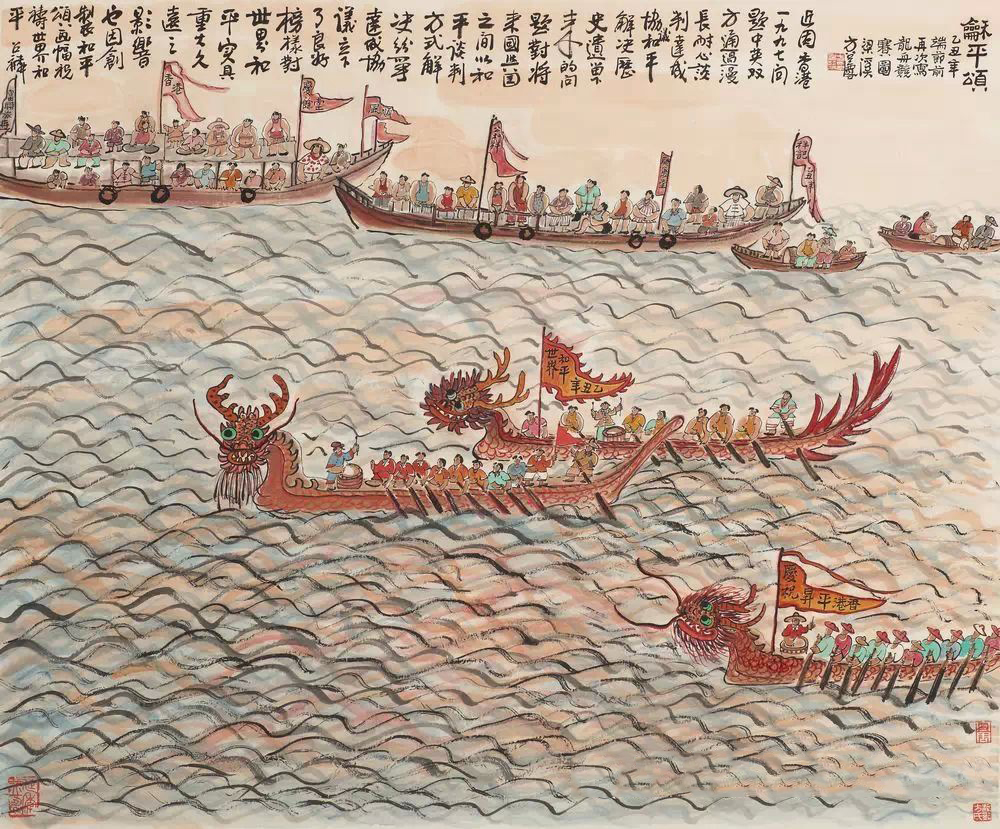 龢平頌
乙丑年
端節前
再次寫
龍舟競
賽圖
梁溪
方召麐
近因香港
一九九七問
題中英双
方通過漫
長耐心談
判達成
協議和平
解決歷
史遺畄
未来的問
題對將
来國與国
之間以和
平談判
方式解
決紛爭
達成協
議立下
了良好
榜樣對
世界和
平實具
重大久
遠之
影響
也因創
製和平
頌画幅祝
禱世界和
平 召麐
香港
祥記
世界
和平
乙丑年
慶祝
昇平香港